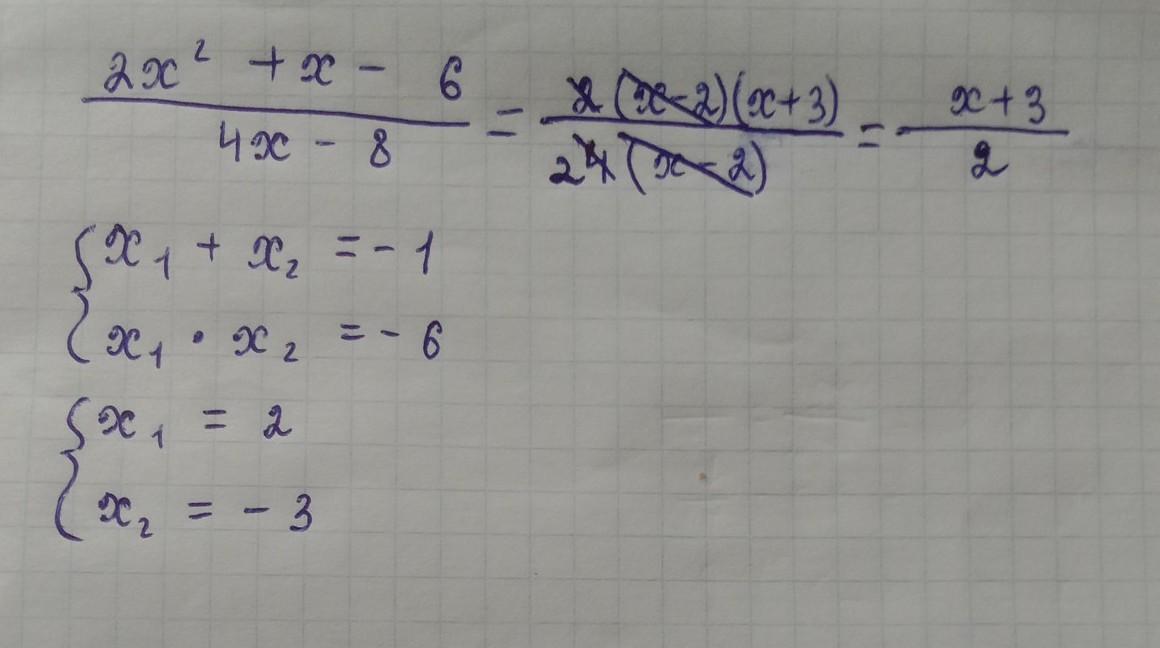 (2x² + x - 6)/(4x - 8) = (2(x-2)(x+3))/(2 4(x-2)) = (x+3)/2
{ x₁ + x₂ = -1
x₁ · x₂ = -6
{ x₁ = 2
x₂ = -3